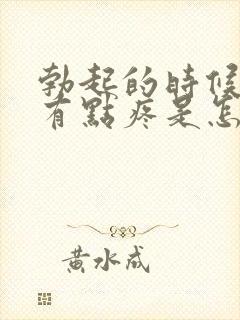 勃起的時候
有點疼是怎
黃水成